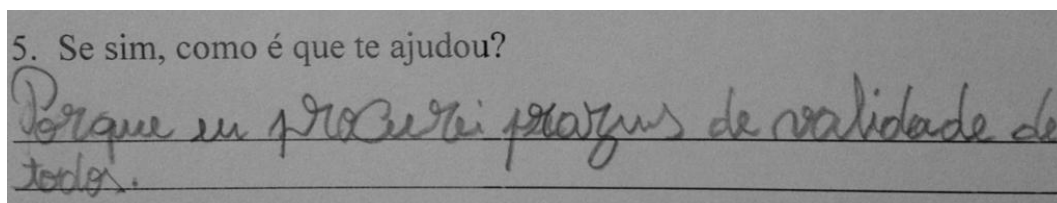 5. Se sim, como é que te ajudou?
Porque eu procurei prazus de validade de
todos.